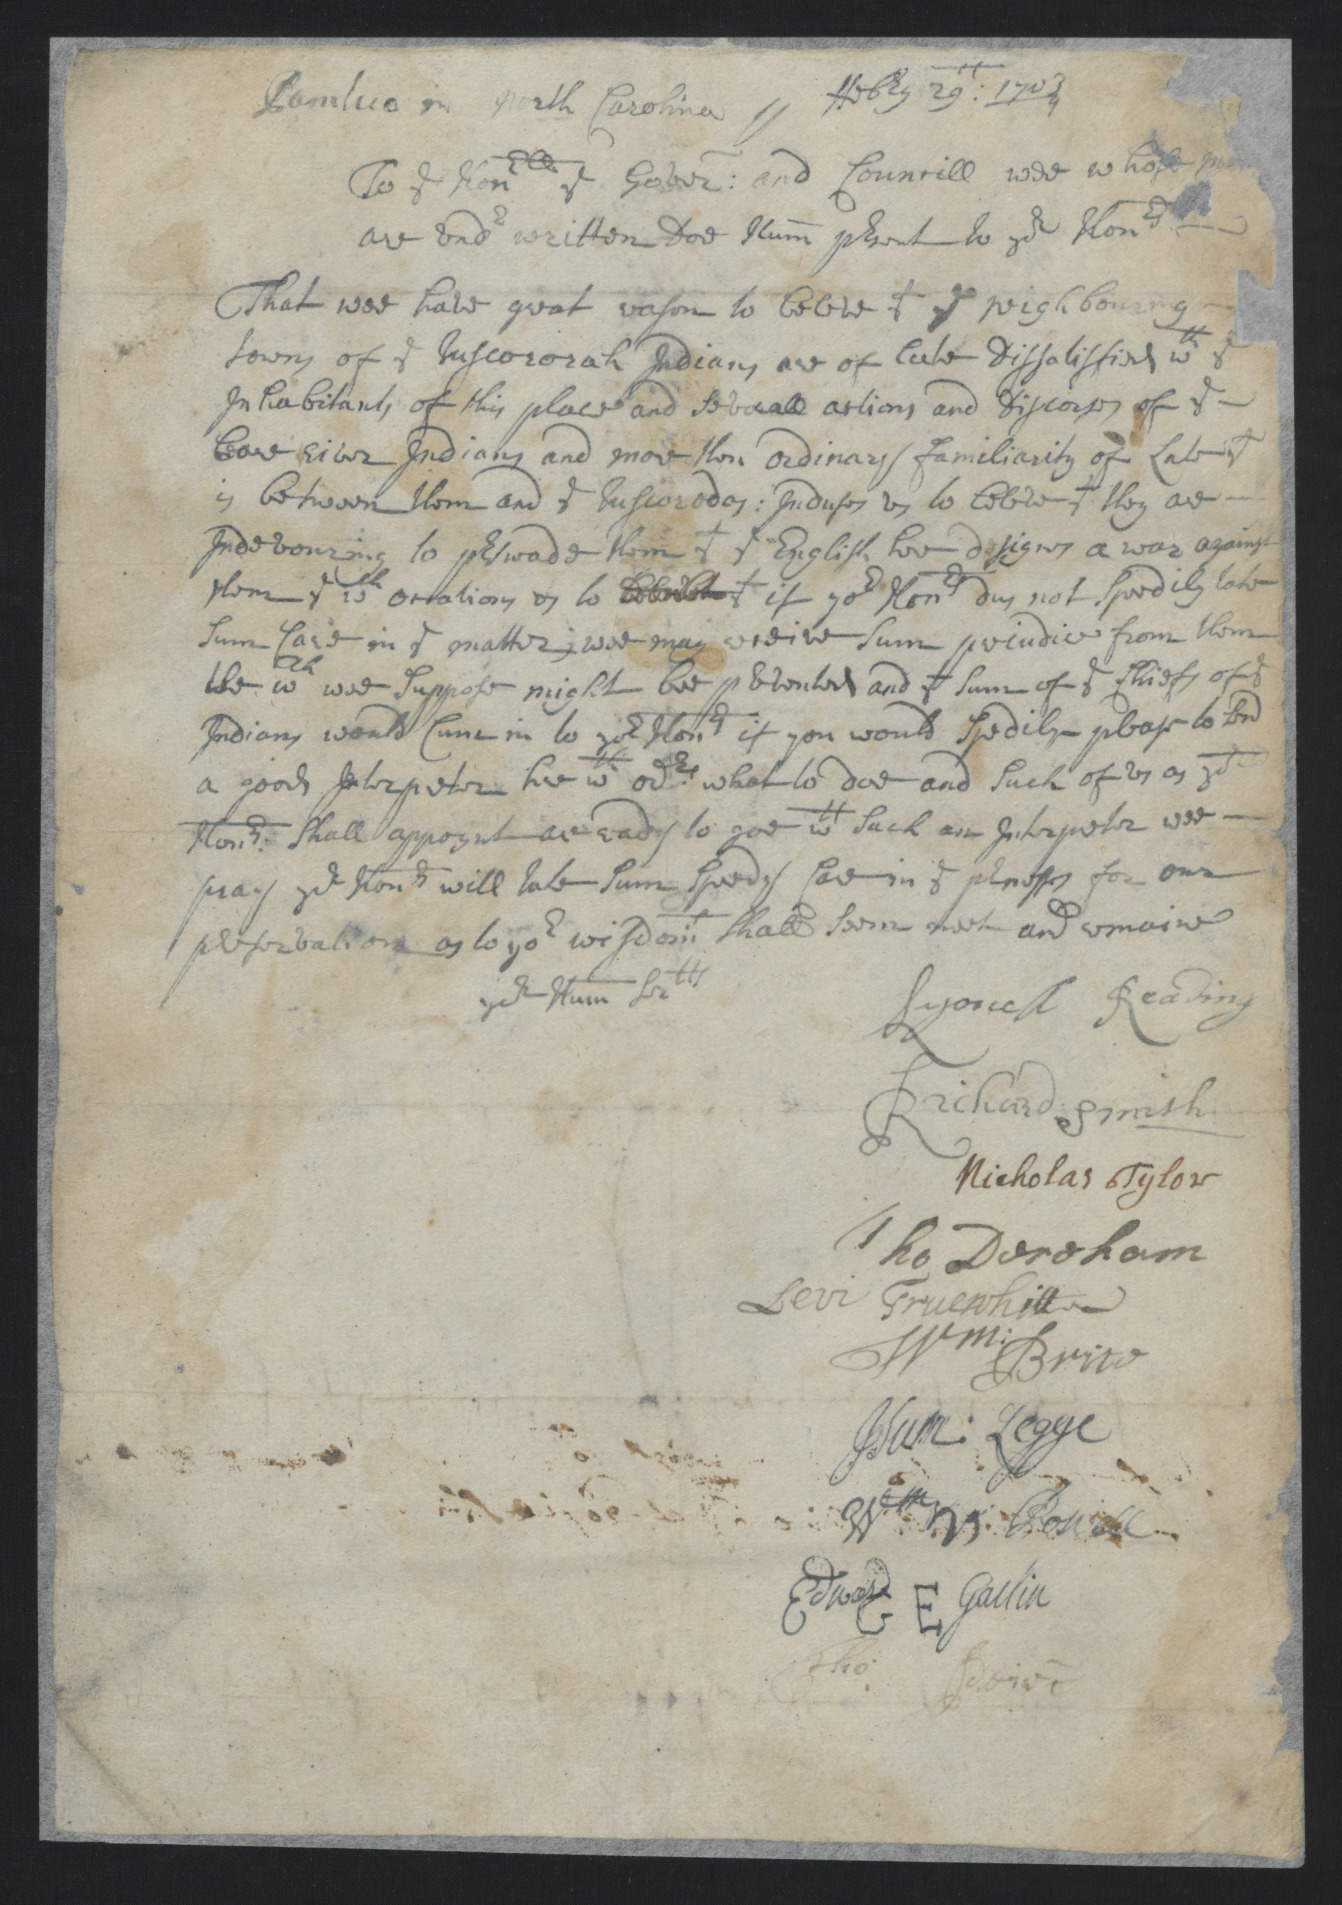 Pamluco in north Carolina // ffebry 29th: 1703/4
To ye Honble ye Goverr: and Councill wee whose
are undr written doe Hum prsent to yr Honrs
That wee have great reason to beleve yt ye neighbouring
towns of ye Tuscororah Indians are of late dissatisfied wth ye
Inhabitants of this place and severall actions and discorses of ye
Bare river Indians and more then ordinary familiarity of Late yt
is between them and ye Tuscorodas: Induses us to beleve yt they are
Indevouring to prswade them yt ye English here designes a war against
them ye wch occations us to yt if yor Honrs dus not Speedily take
Sum Care in ye matter; wee may receive Sum prejudice from them
the wch wee Suppose might bee prevented and yt Sum of ye Chiefs of ye
Indians would Cum in to yor Honrs if you would Spedily please to send
a good Interpreter here wth ordrs: what to doe and Such of us as yr
Honrs: Shall appoynt are ready to goe wth Such an Interpreter wee
pray yr Honrs will take Sum Speedy Care in ye for our
preservation as to yor wisdom Shall Seem meet and remaine
yr Hum Servtts
Lyonell Reading
Richard Smith
Nicholas Tylor
Tho Dereham
Levi Truewhitt
Wm: Brice
Hum: Legge
Wm Powell
Edward E Gatlin
Tho: